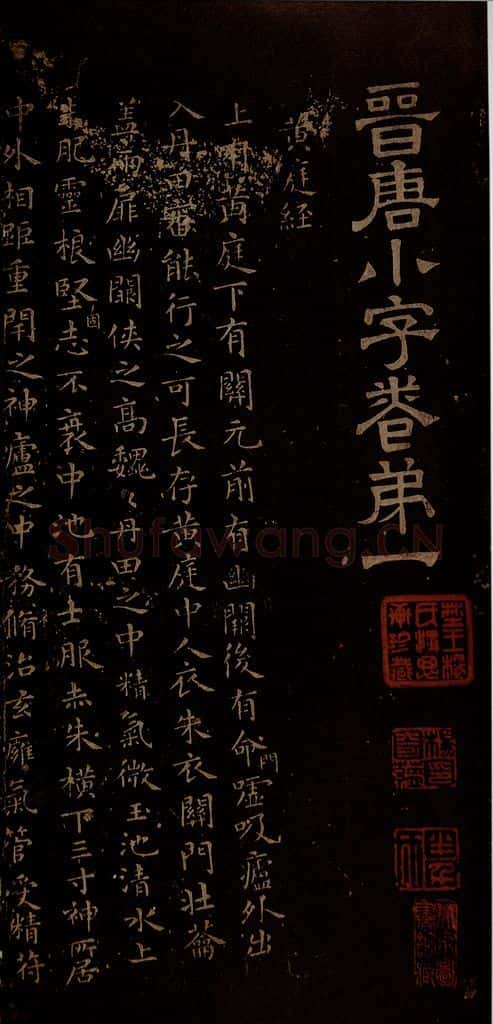 晉唐小字卷弟一
黃庭經
上有黃庭下有關元前有幽闕後有命門噓吸廬外出
入丹田審能行之可長存黃庭中人衣朱衣關門壯蘥
蓋兩扉幽闕俠之高魏〻丹田之中精氣微玉池清水上
生肥靈根堅固志不衰中池有士服赤朱橫下三寸神所居
中外相距重閇之神廬之中務脩治玄癰氣管受精符
Shufawang.CN